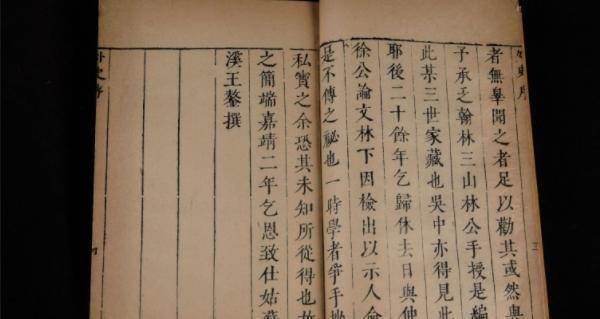 者無舉聞之者足以勸其或然與
予承乏翰林三山林公手授是編
此某三世家藏也吳中亦得見此
耶後二十餘年乞歸休去日與仲
徐公論文林下因檢出以示人僉
是不傳之秘也一時學者爭手抄
私寶之余恐其未知所從得也故
之簡端嘉靖二年乞恩致仕姑蘇
溪王鏊撰